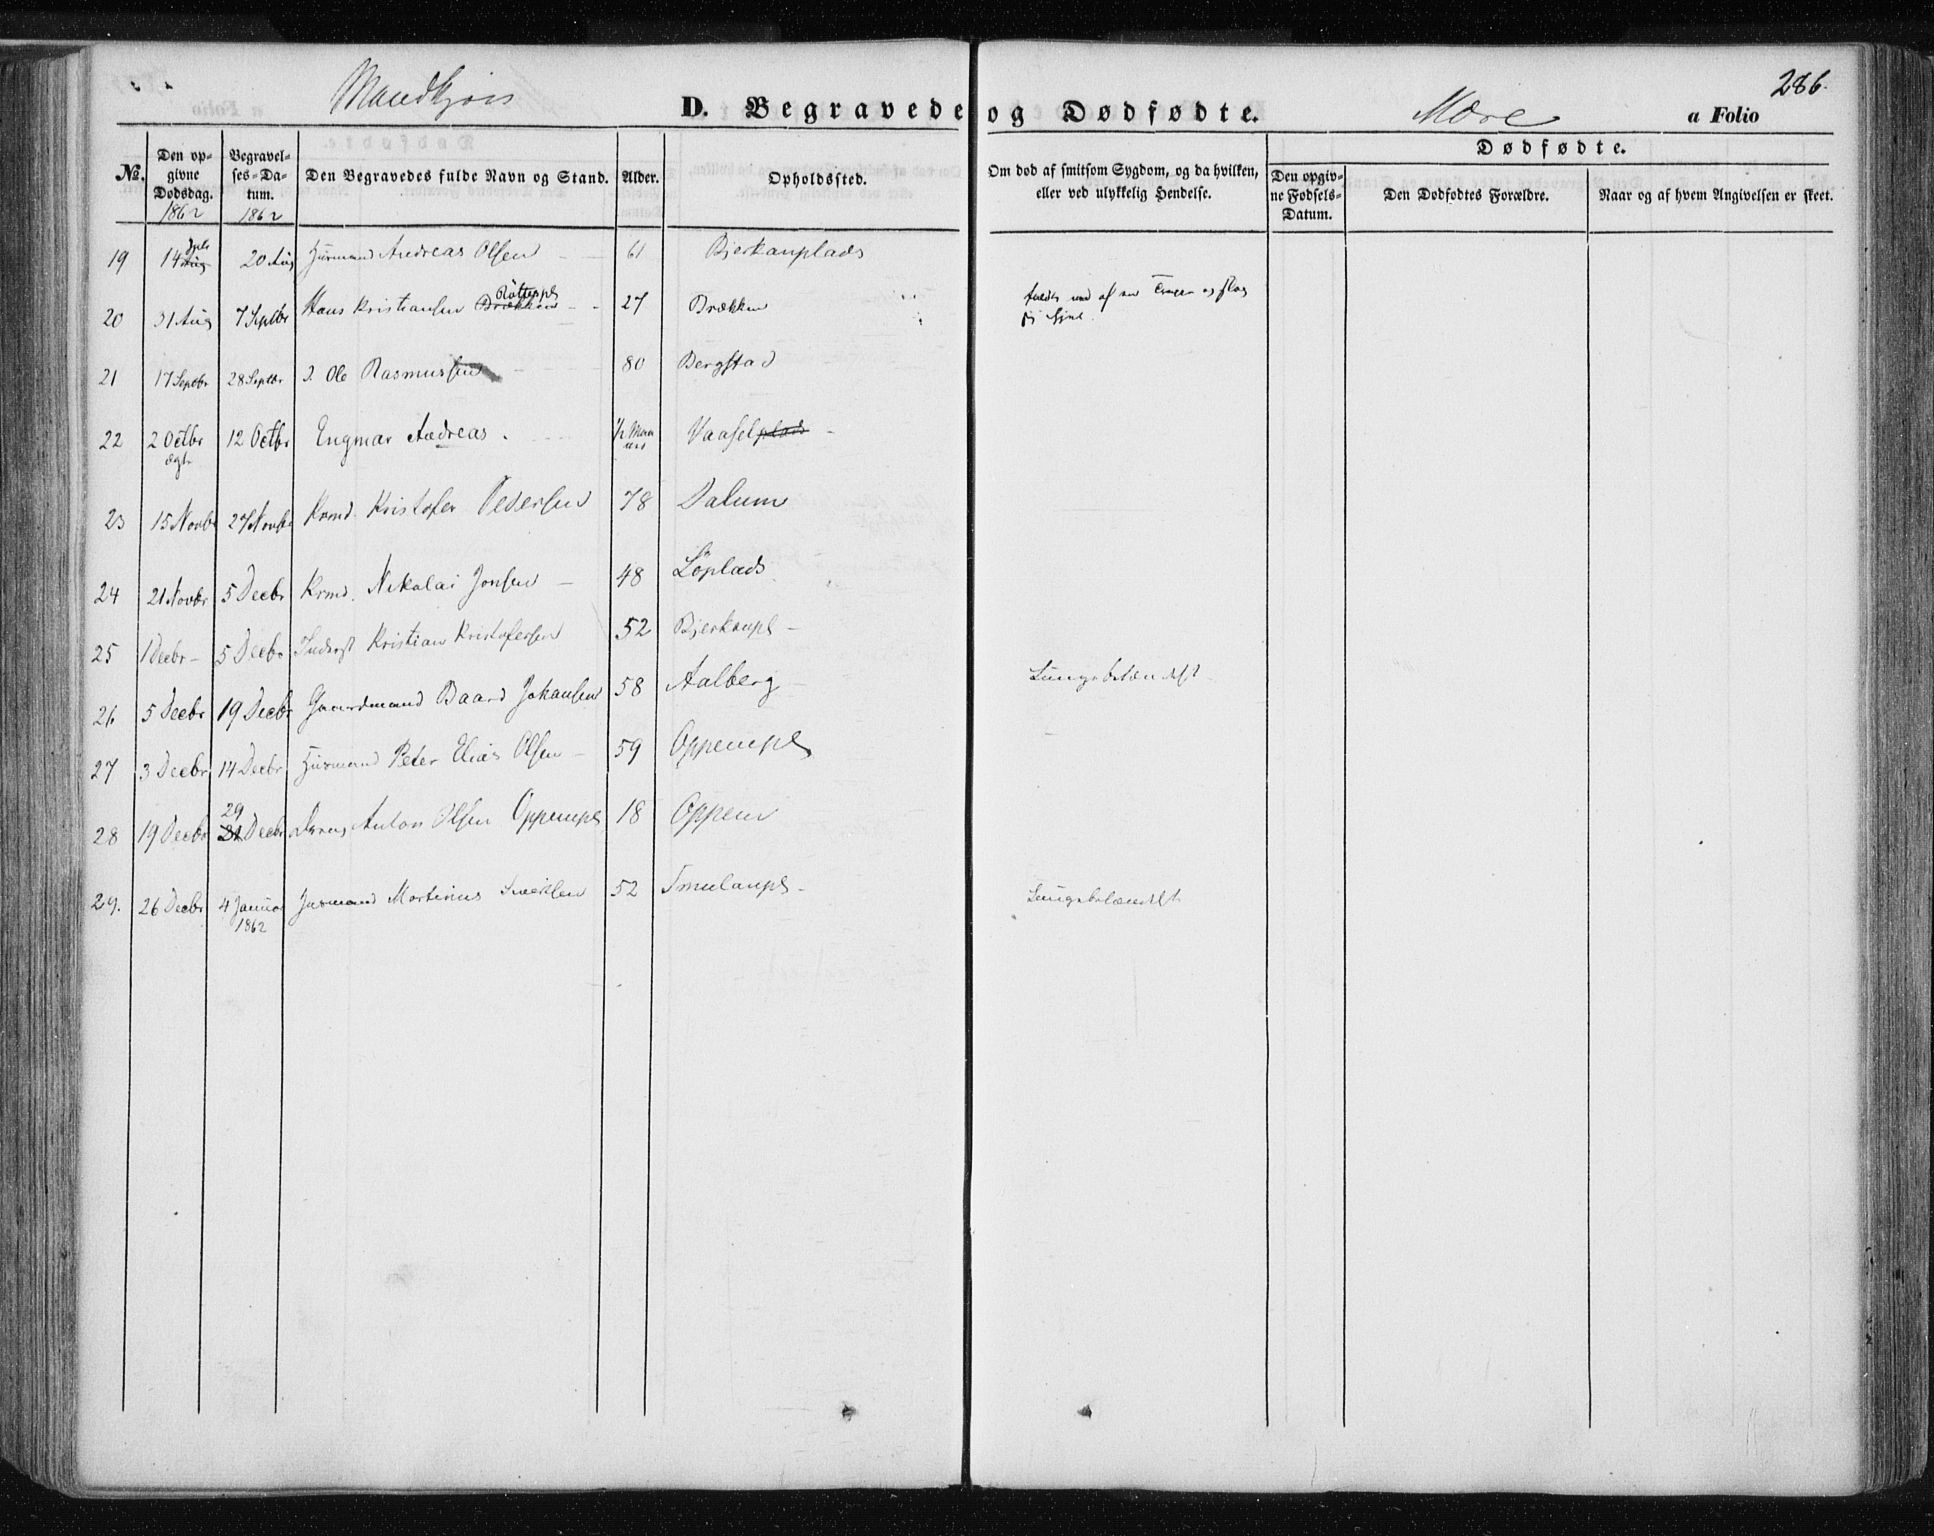 Mandkjøn
D. Begravede og Dødfødte.
Mære
a Folio
286.
Dødfødte.
No. Den opgivne Dødsdag. 1862 Begravelses-Datum. 1862 Den Begravedes fulde Navn og Stand. Alder. Opholdssted. Om død af smitsom Sygdom, og da hvilken, eller ved ulykkelig Hendelse. Den opgivne Fødsels-Datum. Den Dødfødtes Forældre. Naar og af hvem Angivelsen er skeet.
19 14 Aug 20 Aug Husmand Andreas Olsen 61 Bjerkanplads
20 31 Aug 7 Septbr Hans Kristiansen Brækken 27 Brækken og slog
21 17 Septbr 28 Septbr Ole Rasmussen 80 Bergstad
22 2 Octbr ægte 12 Octbr Engmar Andreas. Vaaselplads
23 15 Novbr 27 Novbr Krmd. Kristofer Pedersen 78 Dalum
24 21 Novbr 5 Decbr Krmd. Nikolai Jonsen 48 Løplads
25 1 Decbr 5 Decbr Inderst Kristian Kristofersen 52 Bjerkanpl
26 5 Decbr 19 Decbr Gaardmand Baard Johansen 58 Aalberg Lungebetændelse
27 3 Decbr 14 Decbr Husmand Peter Elias Olsen 59 Oppempl
28 19 Decbr 29 Decbr Anton Olsen Oppempl 18 Oppem
29. 26 Decbr 4 Januar 1862 Husmand Martinus 52 Lungebetændelse